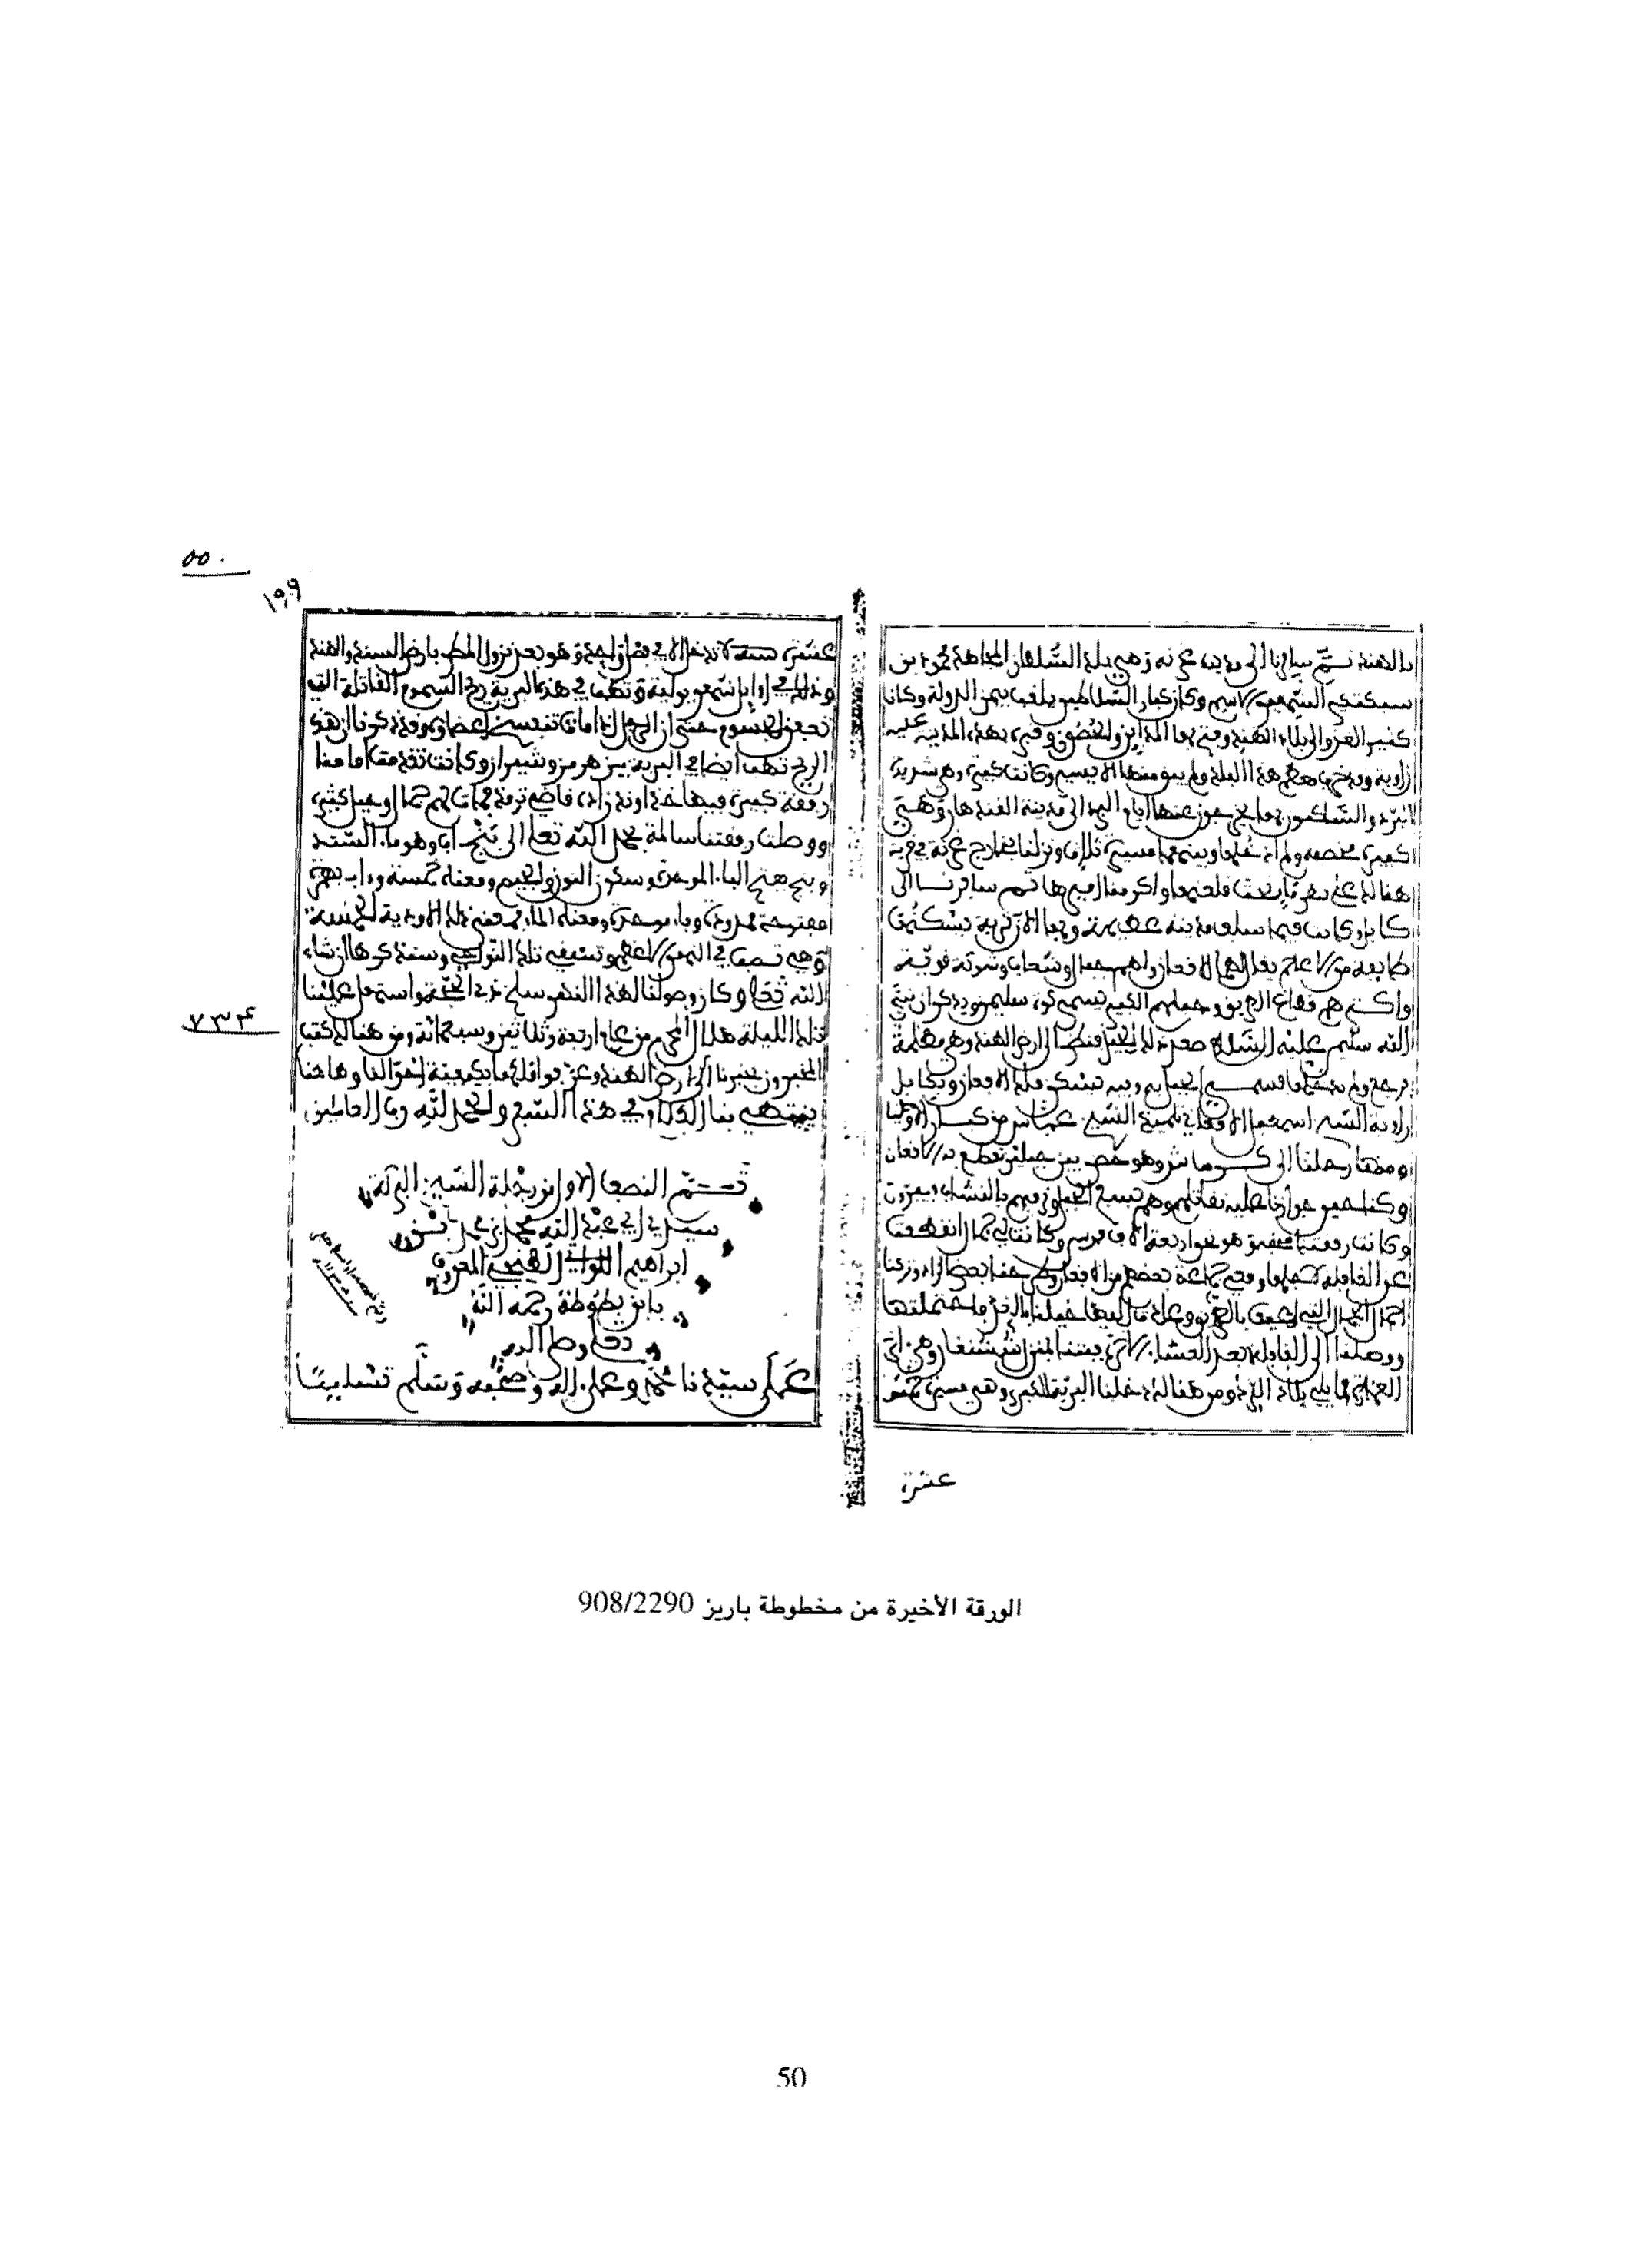 ٥٥٠
١٩٩
بالهند ثم سافرنا الى مدينة غزنة وهي بلد السلطان المجاهد محمود بن
سبكتكين الشهير الاسم وكان من كبار السلاطين يلقب بيمين الدولة وكان
كثير الغزو الى بلاد الهند وفتح بها المداين والحصون وقبره بهذه المدينة عليه
زاوية وقد خرب معظم هذه البلدة ولم يبق منها الا يسير وكانت كبيرة وهي شديدة
البرد والساكنون بها يخرجون عنها ايام البرد الى مدينة القندهار وهي
كبيرة مخصبة ولم ادخلها وبينهما مسيرة ثلاث ونزلنا بخارج غزنة في قرية
هنالك على نهر ماء تحت قلعتها واكرمنا اميرها ثم سافرنا الى
كابل وكانت فيما سلف مدينة عظيمة وبها الان قرية يسكنها
طايفة من الاعاجم يقال لهم الافغان ولهم جبال وشعاب وشوكة قوية
واكثرهم قطاع الطريق وجبلهم الكبير يسمى كوه سليمن ويذكر ان نبي
الله سليمن عليه السلام صعد ذلك الجبل فنظر الى ارض الهند وهي مظلمة
فرجع ولم يدخلها فسمي الجبل به وفيه يسكن ملك الافغان وبكابل
زاوية الشيخ اسمعيل الافغاني تلميذ الشيخ عباس من كبار الاوليا
ومنها رحلنا الى كرماش وهو حصن بين جبلين تقطع به الافغان
وكنا حين جوازنا عليه نقاتلهم وهم بسفح الجبل ونرميهم بالنشاب فيفرون
وكانت رفقتنا مخفة نحو اربعة الاف فرس وكانت لي جمال انقطعت
عن القافلة لاجلها ومعي جماعة بعضهم من الافغان وطرحنا بعض الزاد وتركنا
احمال الجمال التي اعيت بالطريق وعادت اليها خيلنا بالغد فاحتملتها
ووصلنا الى القافلة بعد العشاء الاخرة فبتنا بمنزل ششنغار وهي اخر
العمارة مما يلي بلاد الترك ومن هنالك دخلنا البرية الكبرى وهي مسيرة خمس
عشرة
عشرة لا تدخل الا في فصل واحد وهو بعد نزول المطر بارض السند والهند
وذلك في اوايل شهر يولية وتهب في هذه البرية ريح السموم القاتلة التي
تعفن الجسوم حتى ان الرجل اذا مات تتفسخ اعضاؤه وقد ذكرنا ان هذه
الريح تهب ايضا في البرية بين هرمز وشيراز وكانت تقدمت امامنا
رفقة كبيرة فيها خداوند زاده قاضي ترمذ فمات لهم جمال وخيل كثيرة
ووصلت رفقتنا سالمة بحمد الله تعالى الى بنج اب وهو ماء السند
وبنج بفتح الباء الموحدة وسكون النون والجيم ومعناه خمسة واب بهمزة
مفتوحة ممدودة وباء موحدة ومعناه الماء فمعنى ذلك الاودية الخمسة
وهي تصب في النهر الاعظم وتسقي تلك النواحي وسنذكرها ان شاء
الله تعالى وكان وصولنا لهذا النهر سلخ ذي الحجة واستهل علينا
تلك الليلة هلال المحرم من عام اربعة وثلاثين وسبعمائة ومن هنالك كتب
٧٣۴
المخبرون بخبرنا الى ارض الهند وعرفوا ملكها بكيفية احوالنا وهاهنا
ينتهي بنا الكلام في هذا السفر والحمد لله رب العالمين
تم النصف الاول من رحلة الشيخ البركة
سيدي ابي عبد الله محمد بن محمد بن
ابراهيم اللواتي الطنجي المعروف
بابن بطوطة رحمه الله
وصلى الله
على سيدنا محمد وعلى اله وصحبه وسلم تسليما
الورقة الأخيرة من مخطوطة باريز 908/2290
50